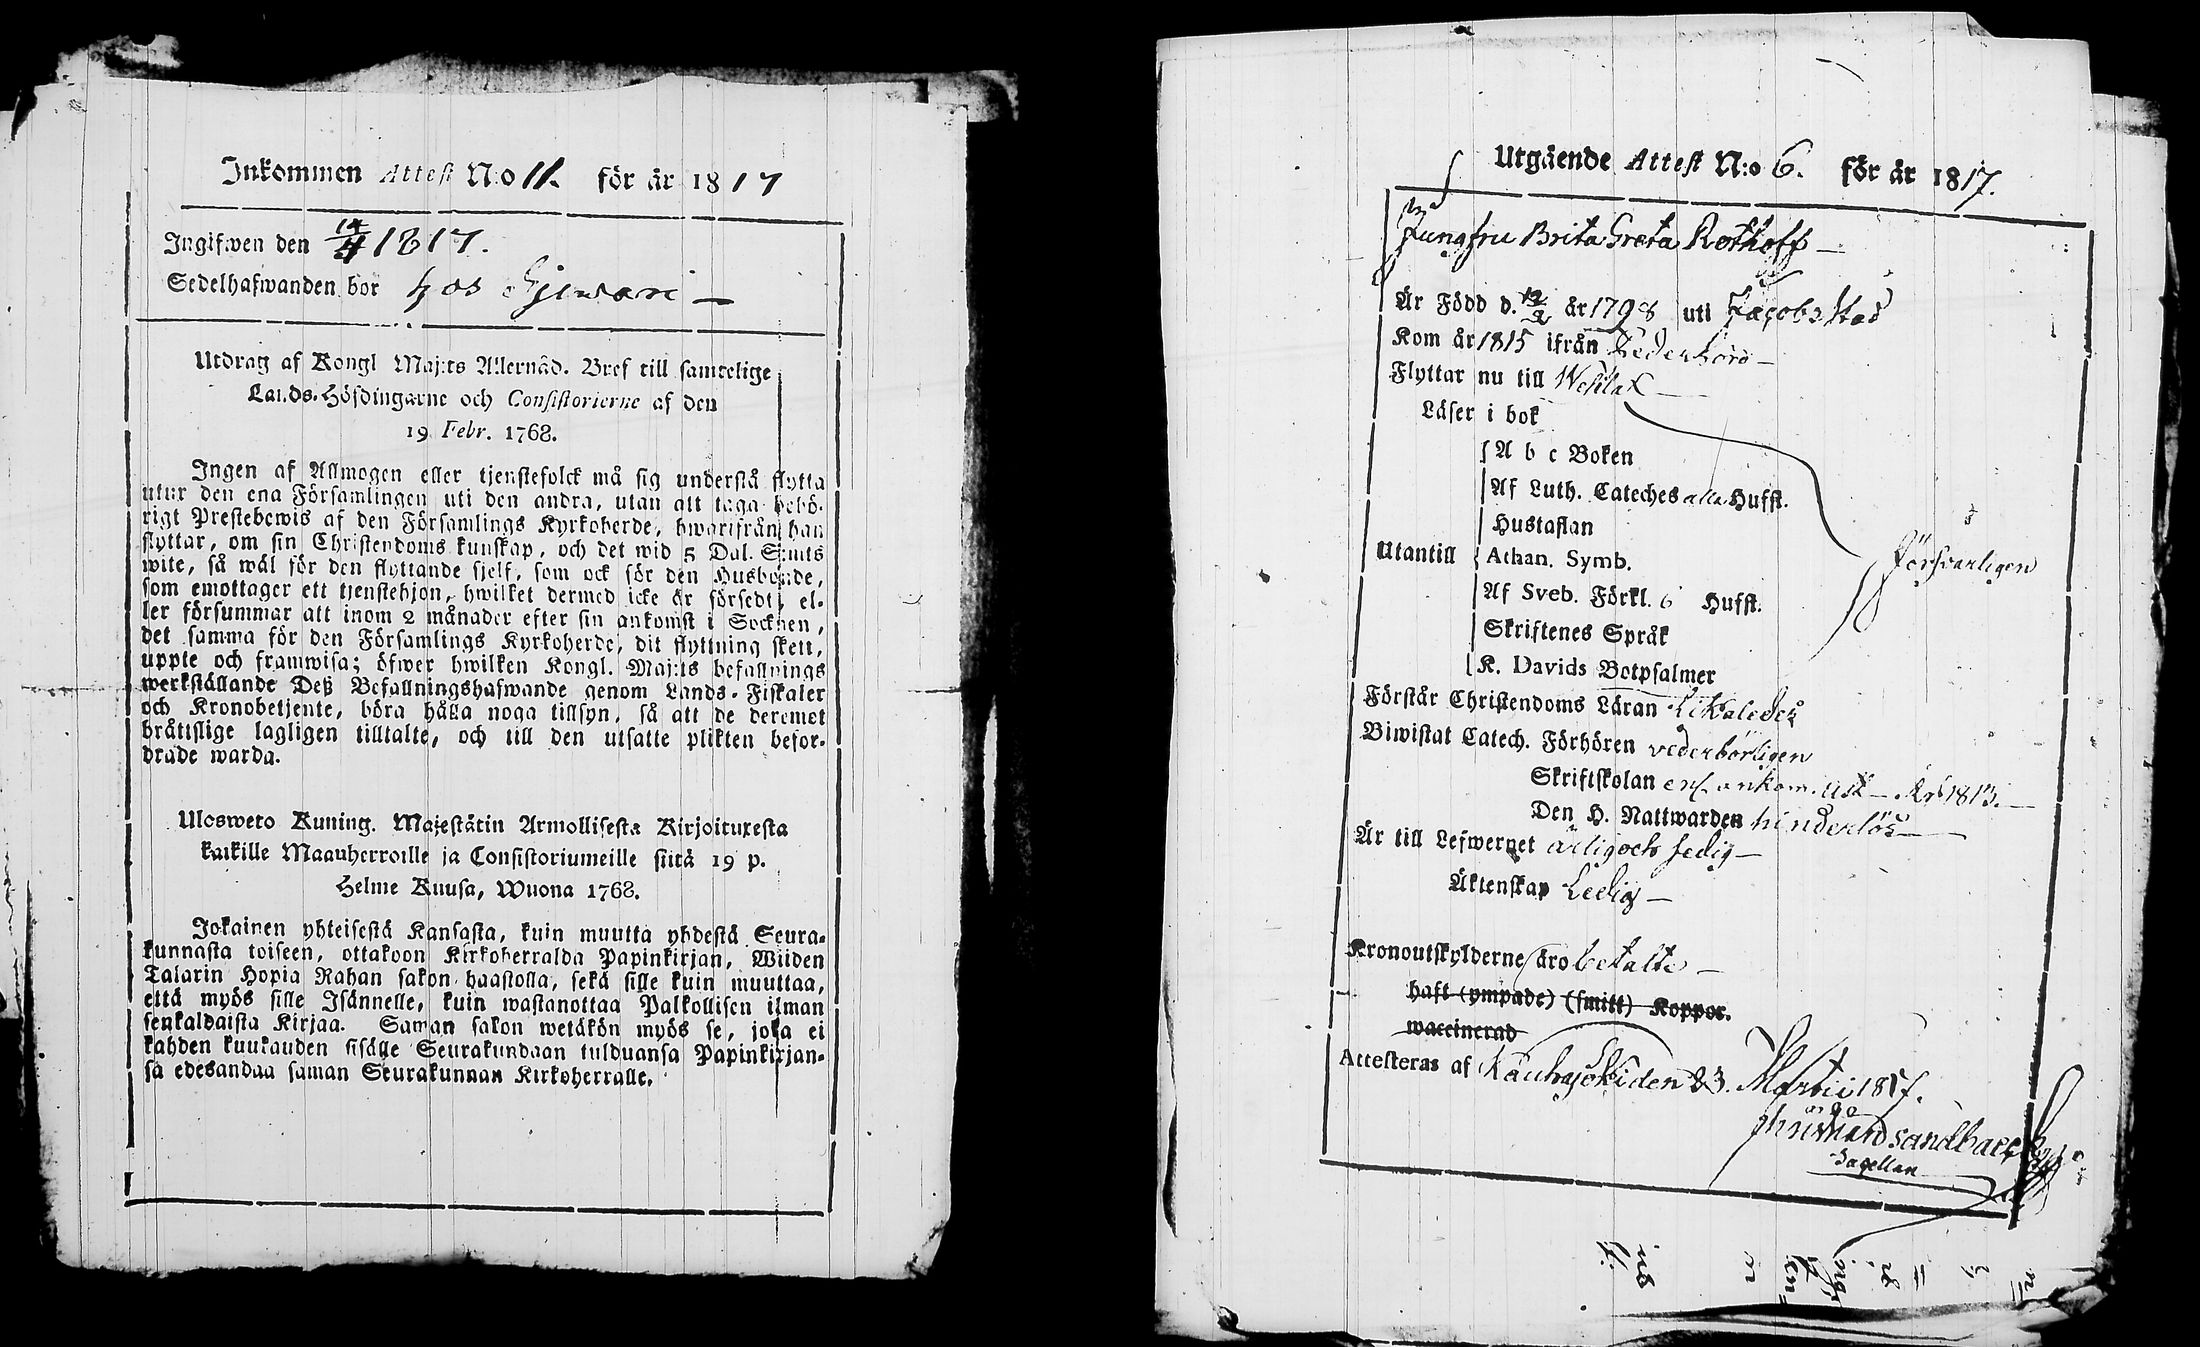 Inkommen Attest N:o 11. för år 1817
Ingifwen den 14/4 1817.
Sedelhafwanden bor hos
Utdrag af Kongl Maj:ts Allernåd. Bref till samtelige
Lands-Höfdingarne och Consistorierne af den
19 Febr. 1768.
Ingen af Allmogen eller tjenstefolck må sig understå flytta
utur den ena Församlingen uti den andra, utan att taga behö-
rigt Prestebewis af den Församlings Kyrkoherde, hwarifrån han
flyttar, om sin Christendoms kunskap, och det wid 5 Dal. S:mts
wite, så wäl för den flyttande sjelf, som ock för den Husbonde,
som emottager ett tjenstehjon, hwilket dermed icke är försedt, el-
ler försummar att inom 2 månader efter sin ankomst i Socknen,
det samma för den Församlings Kyrkoherde, dit flyttning skett,
uppte och framwisa; öfwer hwilken Kongl. Maj:ts befallnings
werkställande Deß Befallningshafwande genom Lands-Fiskaler
och Kronobetjente, böra hålla noga tillsyn, så att de deremot
bråttslige lagligen tilltalte, och till den utsatte plikten befor-
drade warda.
Ulosweto Kuning. Majestätin Armollisesta Kirjoituxesta
kaikille Maanherroille ja Consistoriumeille siitä 19 p.
Helme Kuusa, Wuona 1768.
Jokainen yhteisestä Kansasta, kuin muutta yhdestä Seura-
kunnasta toiseen, ottakoon Kirkoherralda Papinkirjan, Wiiden
Talarin Hopia Rahan sakon haastolla, sekä sille kuin muuttaa,
että myös sille Isännelle, kuin wastanottaa Palkollisen ilman
senkaldaista Kirjaa. Saman sakon wetäkön myös se, joka ei
kahden kuukauden sisälle Seurakundaan tulduansa Papinkirjan-
sa edesandaa saman Seurakunnan Kirkoherralle.
Utgående Attest N:o 6. för år 1817.
Jungfru Brita Greta Rothoff
Är Född d. 12/2 år 1798 uti Jacobstad
Kom år 1815 ifrån Vederhörö
Flyttar nu till
Läser i bok
A b c Boken
Af Luth. Cateches alla Hufst.
Hustaflan
Utantill Athan. Symb. Försvarligen
Af Sveb. Förkl. 6 Hufst.
Skriftenes Språk
K. Davids Botpsalmer
Förstår Christendoms Läran likaledes
Biwistat Catech. Förhören vederbörligen
Skriftskolan enl. ankom. att 1813.
Den H. Nattwarden hinderlös
Är till Lefwernet ärlig och sedig
Äktenskap Ledig
Kronoutskylderne äro betalte
haft (ympade) (smitt) Koppor.
waccinerad
Attesteras af Kauhajoki den 23. Martii 1817.
Sandbacka
Sacellan